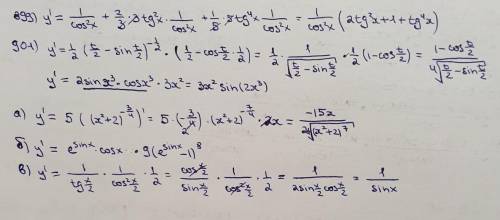 899) y' = 1/cos²x + 2/3 · 3tg²x · 1/cos²x + 1/5 · 5tg⁴x 1/cos²x = 1/cos²x (2tg²x + 1 + tg⁴x)
901) y' = 1/2 (x/2 − sin x/2)^(−1/2) · (1/2 − cos x/2 · 1/2) = 1/2 · 1/√(x/2 − sin x/2) · 1/2 (1 − cos x/2) = (1 − cos x/2)/(4√(x/2 − sin x/2))
y' = 2sin x³ · cos x³ · 3x² = 3x² sin(2x³)
а) y' = 5 ((x²+2)^(−3/4))' = 5 · (−3/4) · (x²+2)^(−7/4) · 2x = −15x/(2 ⁴√(x²+2)⁷)
б) y' = e^(sinx) · cosx · 9(e^(sinx) − 1)⁸
в) y' = 1/(tg x/2) · 1/(cos² x/2) · 1/2 = (cos x/2)/(sin x/2) · 1/(cos² x/2) · 1/2 = 1/(2sin x/2 cos x/2) = 1/sinx